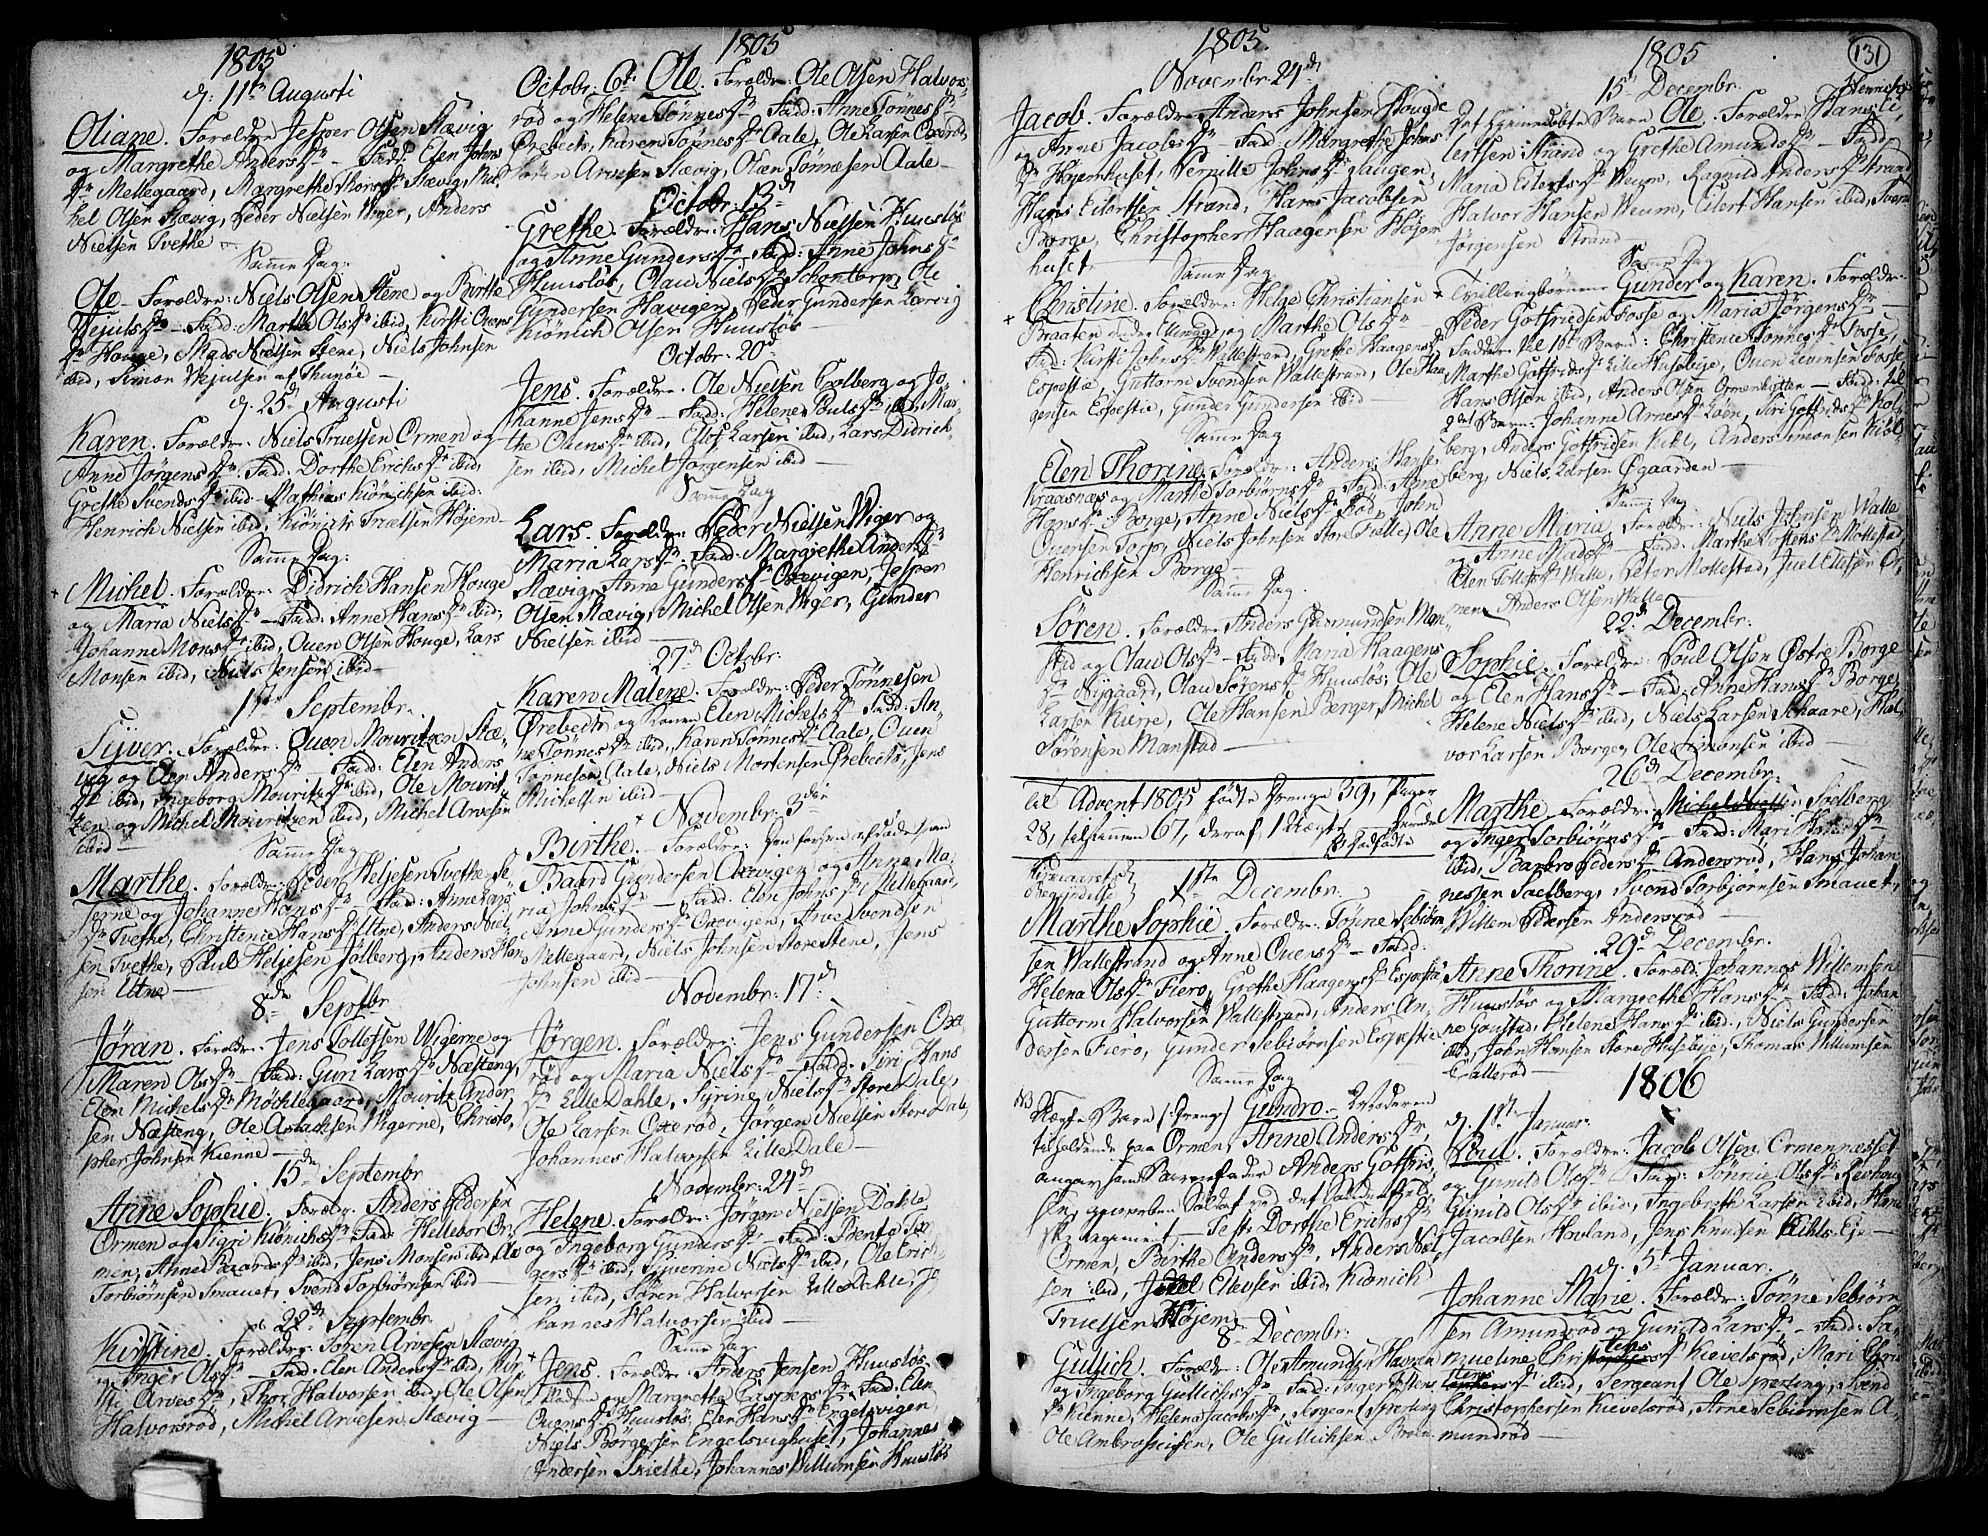 1805
d: 11te Augusti
Oliane. Forældre Jesper Olsen Slævig
og Margrethe Andersdr — Fadd: Elen Johns
dr Mellegaard, Margrethe Thorsdr Slævig, Mic
hel Olsen Slævig, Peder Nielsen Wiger, Anders
Nielsen Tvethe —
Samme Dag:
Ole — Forældre: Niels Olsen Stene og Birthe
Wejulsdr — Fadd: Marthe Olsdr ibid, Kirsti Ovens
dr Houge, Mads Nielsen Stene, Niels Johnsen
ibid, Simon Wejulsen af Thunöe —
d. 25de Augusti
Karen. Forældre: Niels Truelsen Ormen og
Anne Jörgensdr. Fadd: Dorthe Erichsdr ibid,
Grethe Svendsdr ibid, Mathias Kiönichsen ibid:
Henrich Nielsen ibid, Kiönich Truelsen Höjem —
Samme Dag:
Michel. Forældre: Didrich Hansen Houge
og Maria Nielsdr — Fadd: Anne Hansdr ibid:
Johanne Monsdr ibid, Ouen Olsen Houge, Lars
Monsen ibid, Niels Jensen ibid —
1ste Septembr.
Sijver. Forældre: Ouen Mouritzen Slæ-
vig og Elen Andersdr Fadd: Elen Anders
dr ibid, Ingeborg Mouritzdr ibid, Ole Mourit-
zen og Michel Mouritzen ibid, Michel Arvesen
ibid —
Samme Dag
Marthe. Forældre: Peder Heljesen Tvethe
og Johanne Hansdr — Fadd: Anne Lars
dr Tvethe, Christence Hansdr Utne, Anders Niel-
sen Tvethe, Paul Heljesen Jölberg, Anders Han
sen Utne —
8de Septbr
Jöran. Forældre. Jens Tollofsen Wigerne og
Maren Olsdr — Fadd: Guri Larsdr Næsteng,
Elen Michelsdr Möchlegaard, Mouritz Ander
sen Næsteng, Ole Aslachsen Wigerne, Christo-
pher Johnsen Kienne —
15de Septembr
Anne Sophie. Forældre. Anders Pedersen
Ormen og Sigri Kiönichsdr Fadd: Hellebor Or-
men, Anne Baardsdr ibid, Jens Monsen ibid, Ole
Torbiörnsen Smauet, Svend Torbiörnsen ibid —
22de Septembr
Kirstine. Forældre: Sören Arvesen Slævig
og Inger Olsdr — Fadd. Elen Andersdr ibid, Kir
sti Arvesdr, Thor Halvorsen ibid, Ole Olsen
Halvorsröd, Michel Arvesen Slævig —
1805
Octobr: 6te Ole. Forældre: Ole Olsen Halvors-
röd og Helene Tönnesdr Fadd: Anne Tönnesdr
Örebech, Karen Tönnesdr Aale, Ole Larsen Oxeröd
Sören Arvesen Slævig, Ouen Tönnesen Aale —
Octobr: 13de
Grethe. Forældre: Hans Nielsen Huuslös
og Anne Gundersdr — Fadd: Anne Johnsdr
Huuslös, Olau Nielsdr Schontorp, Ole
Gundersen Havigen, Peder Gundersen Larvig
Kiönich Olsen Huuslös —
Octobr: 20de
Jens. Forældre. Ole Nielsen Solberg og Jo-
hanne Jensdr — Fadd: Helene Poulsdr ibid, Mar-
the Ouensdr ibid, Ellof Larsen ibid, Lars Didrich-
sen ibid, Michel Jörgensen ibid —
Samme Dag
Lars. Forældre Peder Nielsen Wiger og
Maria Larsdr — Fadd: Margrethe Andersdr
Slævig, Anne Gundersdr Oxevigen, Jesper
Olsen Slævig, Michel Olsen Wiger, Gunder
Nielsen ibid —
27de Octobr:
Karen Malene. Forældre: Peder Tönnesen
Örebech og Konen Elen Michelsdr Fadd: An-
ne Tönnesdr ibid, Karen Tönnesdr Aale, Ouen
Tönnesen Aale, Niels Mortensen Örebech, Jens
Michelsen ibid —
Novembr: 3die
Birthe. — Forældre: den forhen afdøde
Baard Gundersen Oxevigen og Anne Ma-
ria Johnsdr — Fadd. Elen Johnsdr Mellegaard,
Anne Gundersdr Oxevigen, Arve Svendsen
Mellegaard, Niels Johnsen Store Stene, Jens
Johnsen ibid —
Novembr: 17de
Jörgen. Forældre: Jens Gundersen Oxe-
röd og Maria Nielsdr — Fadd: Siri Hans
dr Lille Dahle, Syrine Nielsdr Store Dale,
Ole Larsen Oxeröd, Jörgen Nielsen Store Dale,
Johannes Halvorsen Lille Dale —
Novembr: 24de
Helene. Forældre: Jörgen Nielsen Dahle
og Ingeborg Gundersdr, Fadd: Bente
gersdr ibid, Sijverine Nielsdr ibid, Ole Erich-
sen ibid, Sören Halvorsen Lille Dahle, Jo
hannes Halvorsen ibid —
Samme Dag
Jens. Forældre: Anders Jensen Huuslös
og Margrethe Caspersdr, Fadd: Elen
Ouensdr Huuslös, Elen Hansdr Engelsvigen,
Niels Börgersen Engelsvighuset, Johannes
Andersen Skielle, Johannes Willumsen Huuslös
1805.
Novembr: 24de
Jacob. Forældre Anders Johnsen Hougde
og Anne Jacobsdr — Fadd: Margrethe Johns
dr Höjemhuset, Pernille Johnsdr Haugen,
Hans Eilertsen Strand, Hans Jacobsen
Borge, Christopher Haagensen Höjem
huset —
Samme Dag
Christine. Forældre: Helge Christiansen
Braaten og Marthe Olsdr —
Fad: Kirsti Johnsdr Wallestrand, Grethe Haagensdr
Espestie, Guttorm Svendsen Wallestrand, Ole Haa
gensen Espestie, Gunder Gundersen ibid —
Samme Dag
Elen Thorine. Forældre: Anders Hanse
Kraasnæs og Marthe Torbiörnsdr — Fadd: Anne
Hansdr Borge, Anne Nielsdr ibid, John
Ouensen Torp, Niels Johnsen Store Tielle, Ole
Henrichsen Borge —
Samme Dag.
Sören. Forældre Anders Gudmundsen Man-
stad og Olau Olsdr — Fadd: Maria Haagens
dr Nygaard, Olau Sörensdr Huuslös, Ole
Larsen Kiære, Ole Hansen Berger, Michel
Sörensen Manstad —
til Advent 1805 födte Drenge 39, Piger
28, tilsammen 67, deraf 1 Uægte
Kirkeaarets Begyndelse
1ste Decembr.
Marthe Sophie. Forældre: Tönne Sebiörn
sen Wallestrand og Anne Ouensdr — Fadd:
Helena Olsdr Fiero, Grethe Haagensdr Espestie,
Guttorm Halvorsen Wallestrand, Anders An-
dersen Fiero, Gunder Sebiörnsen Espestie
Samme Dag
NB Uægte Barn (:Dreng:) Gundro. — Moderen
tilholdende paa Ormen, Anne Andersdr,
angav som Barnefader Anders Gotfrid-
sen, geworben Soldat ved det Söndenfield-
ske Regiment — Test: Dorthe Erichsdr
Ormen, Börthe Andersdr, Anders Niel-
sen ibid, Elevsen ibid, Kiönich
Truelsen Höjem
8de Decembr:
Gullich. Forældre: Ole Amundsen Hauen
og Ingeborg Gullichsdr — Fadd: Inger
dr Kienne, Helene Jacobsdr, Sergeant Sperling
Ole Ambrosiusen, Ole Gullichsen
1805
131
15de Decembr.
Det hjemmedöbte Barn Ole. Forældre Hans Ei-
lertsen Strand og Grethe Amundsdr — Fadd:
Maria Eilertsdr Weum, Ragnild Andersdr Strand
Halvor Hansen Weum, Eilert Hansen ibid, Svend
Jörgensen Strand —
Samme Dag
Tvillingbörnene Gunder og Karen. Forældre:
Peder Gotfriedsen Fosse og Maria Jörgensdr —
Faddere til 1ste Barn: Christence Tönnesdr Fosse,
Marthe Gotfridsdr Lille Huseböje, Ouen Levinsen Fosse,
Hans Olsen ibid, Anders Olsen — Fadd: til
2det Barn: Johanne Arnesdr Löen, Siri Gotfridsdr Kol-
berg, Anders Gotfridsen Kihl, Anders Simonsen Kiöl-
berg, Niels Larsen Ögaarden —
Samme Dag
Anne Maria. Forældre: Niels Johnsen Walle
og Anne Madsdr — Fadd: Marthe Mollestad,
Elen Tollefsdr Walle, Peter Mollestad, Juel Ellefsen Or-
men, Anders Olsen Walle —
22de Decembr:
Sophie. Forældre: Poul Olsen Østre Borge
og Elen Hansdr — Fadd: Anne Hansdr Borge,
Helene Nielsdr ibid, Niels Larsen Schaare, Hal-
vor Larsen Borge, Ole Simonsen ibid —
26de Decembr:
Marthe. Forældre: Sælberg
og Inger Torbiörnsdr — Fadd: Mari
ibid, Barbro Pedersdr Andersröd, Hans Johan
nessen Saelberg, Svend Torbjörnsen Smauet,
Willum Pedersen Andersröd —
29de Decembr.
Anne Thorine. Foræld: Johannes Willumsen
Huuslös og Margrethe Hansdr — Fadd: Johan
ne Gonstad, Helene Hansdr ibid, Niels Gundersen
ibid, John Hansen Store Huseböje, Thomas Willumsen
Tralleröd —
1806
d. 1ste Januar.
Poul. Forældre: Jacob Olsen Ormennæsset
og Gunild Olsdr — Fadd: Tönnie Olsdr Revhaug
Gunild Olsdr ibid, Ingebreth Larsen ibid, Hans
Jacobsen Houland, Jens Knudsen Kihls Eje —
d. 5te Januar.
Johanne Marie. Forældre: Tönne Sebiörn
sen Amundröd og Gunild Larsdr — Fadd: Sa-
mueline Christensdr Kievelsröd, Mari Chri
stensdr ibid, Sergeant Ole Sperling, Svend
Christophersen Kievelsröd, Arne Sebiörnsen A-
mundröd —